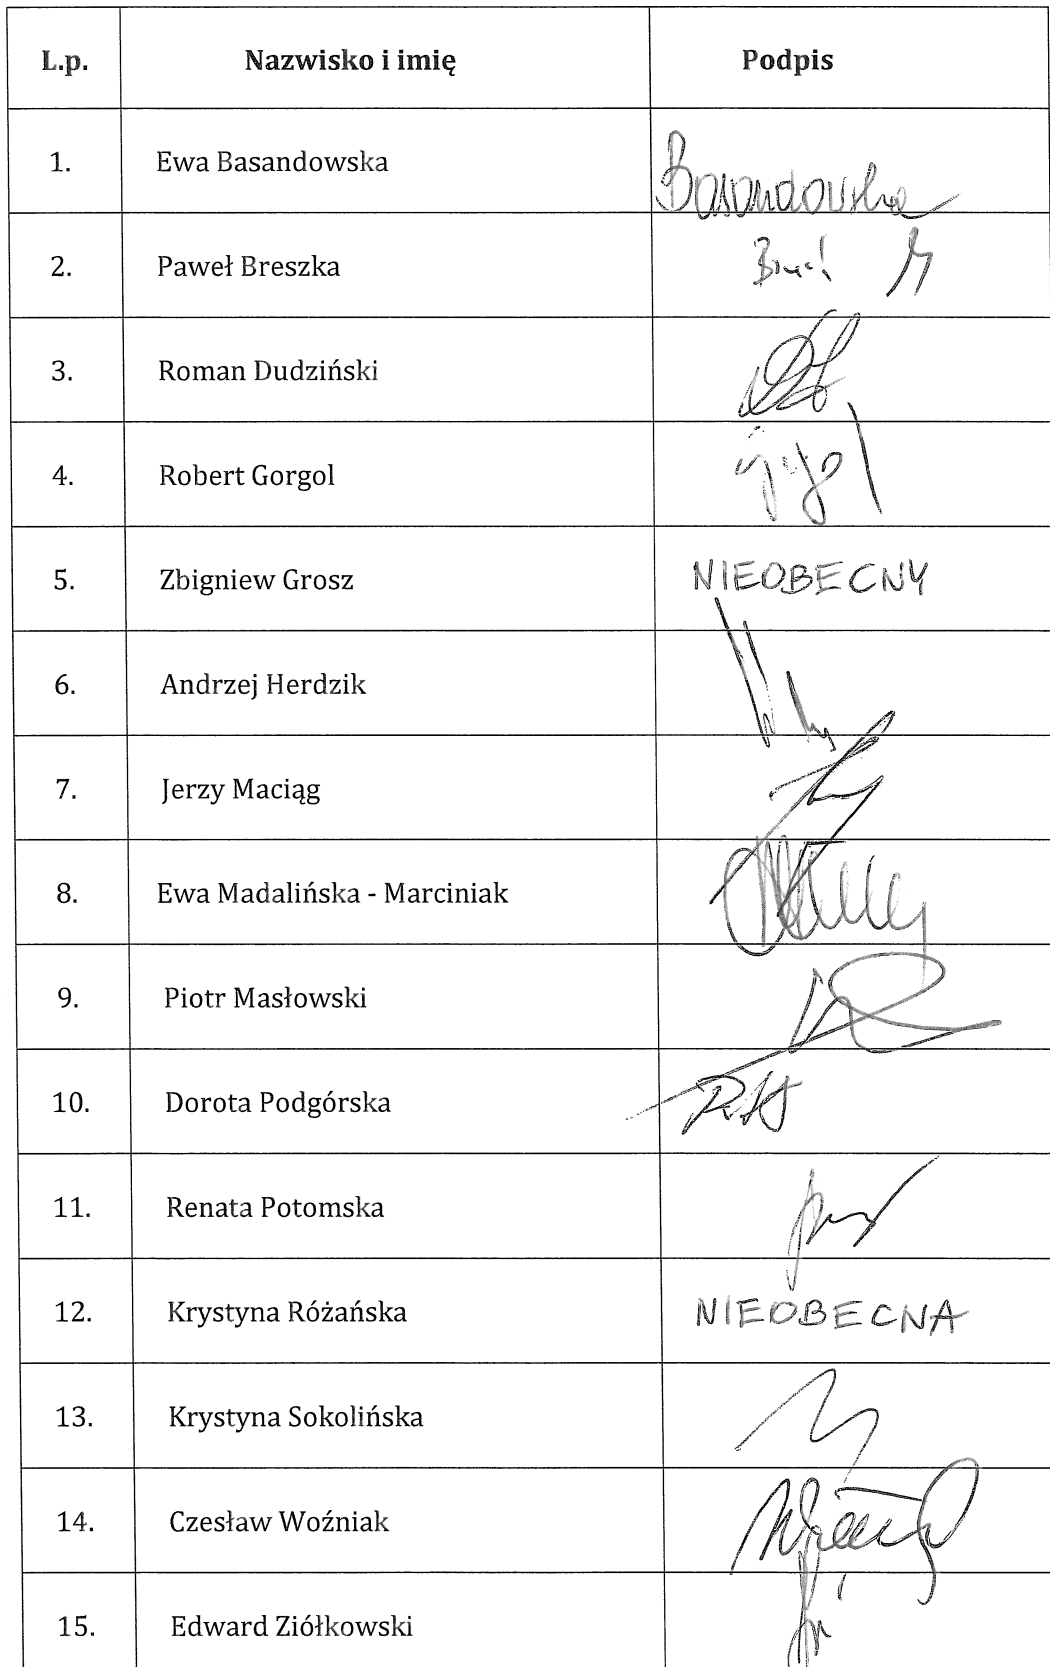 L.p. Nazwisko i imię Podpis
1. Ewa Basandowska Basandowska
2. Paweł Breszka
3. Roman Dudziński
4. Robert Gorgol
5. Zbigniew Grosz NIEOBECNY
6. Andrzej Herdzik
7. Jerzy Maciąg
8. Ewa Madalińska - Marciniak
9. Piotr Masłowski
10. Dorota Podgórska
11. Renata Potomska
12. Krystyna Różańska NIEOBECNA
13. Krystyna Sokolińska
14. Czesław Woźniak
15. Edward Ziółkowski